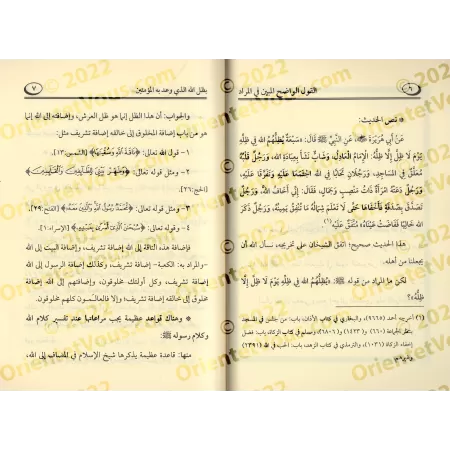 ٦
القول الواضح المبين في المراد
* نص الحديث:
عَنْ أَبِي هُرَيْرَةَ ﵁، عَنِ النَّبِيِّ ﷺ قَالَ: «سَبْعَةٌ يُظِلُّهُمُ اللهُ فِي ظِلِّهِ
يَوْمَ لَا ظِلَّ إِلَّا ظِلُّهُ: الْإِمَامُ الْعَادِلُ، وَشَابٌّ نَشَأَ بِعِبَادَةِ اللهِ، وَرَجُلٌ قَلْبُهُ
مُعَلَّقٌ فِي الْمَسَاجِدِ، وَرَجُلَانِ تَحَابَّا فِي اللهِ اجْتَمَعَا عَلَيْهِ وَتَفَرَّقَا عَلَيْهِ،
وَرَجُلٌ دَعَتْهُ امْرَأَةٌ ذَاتُ مَنْصِبٍ وَجَمَالٍ، فَقَالَ: إِنِّي أَخَافُ اللهَ، وَرَجُلٌ
تَصَدَّقَ بِصَدَقَةٍ فَأَخْفَاهَا حَتَّى لَا تَعْلَمَ شِمَالُهُ مَا تُنْفِقُ يَمِينُهُ، وَرَجُلٌ ذَكَرَ
اللهَ خَالِيًا فَفَاضَتْ عَيْنَاهُ» مُتَّفَقٌ عَلَيْهِ(١)
هذا الحديث صحيح؛ اتفق الشيخان على تخريجه، نسأل الله أن
يجعلنا من أهله.
لكن ما المراد من قوله ﷺ: «يُظِلُّهُمُ اللهُ فِي ظِلِّهِ يَوْمَ لَا ظِلَّ إِلَّا
ظِلُّهُ»؟
(١) أخرجه أحمد (٩٦٦٥)، والبخاري في كتاب الأذان، باب: من جلس في المسجد
ينتظر الصلاة (٦٦٠) و (١٤٢٣) و (٦٨٠٦)، ومسلم في كتاب الزكاة، باب: فضل
إخفاء الزكاة (١٠٣١)، والترمذي في كتاب الزهد، باب: الحب في الله (٢٣٩١)
بظل الله الذي وعد به المؤمنين
٧
والجواب: أن هذا الظل إنما هو ظل العرش، وإضافته إلى الله إنما
هو من باب إضافة المخلوق إلى خالقه إضافة تشريف مثل:
١ - قول الله تعالى: ﴿نَاقَةَ اللَّهِ وَسُقْيَاهَا﴾ [الشمس:١٣].
٢ - ومثل قوله تعالى: ﴿وَطَهِّرْ بَيْتِيَ لِلطَّائِفِينَ وَالْقَائِمِينَ﴾
[الحج:٢٦].
٣ - ومثل قوله تعالى: ﴿مُحَمَّدٌ رَسُولُ اللَّهِ وَالَّذِينَ مَعَهُ﴾ [الفتح:٢٩].
٤ - وقوله تعالى: ﴿سُبْحَانَ الَّذِي أَسْرَى بِعَبْدِهِ﴾ [الإسراء:١].
فإضافة هذه الناقة إلى الله إضافة تشريف، وإضافة البيت إلى الله
-والمراد به: الكعبة- إضافة تشريف، وكذلك إضافة الرسول إلى الله
إضافة تشريف، وكل أولئك مخلوقون، وإضافتهم إلى الله إضافة
مخلوق إلى خالقه إضافة تشريف، وإلا فالعالمون كلهم مخلوقون.
* وهناك قواعد عظيمة يجب مراعاتها عند تفسير كلام الله
وكلام رسوله ﷺ:
منها: قاعدة عظيمة يذكرها شيخ الإسلام في المضاف إلى الله،
© 2022
OrientetVous.com